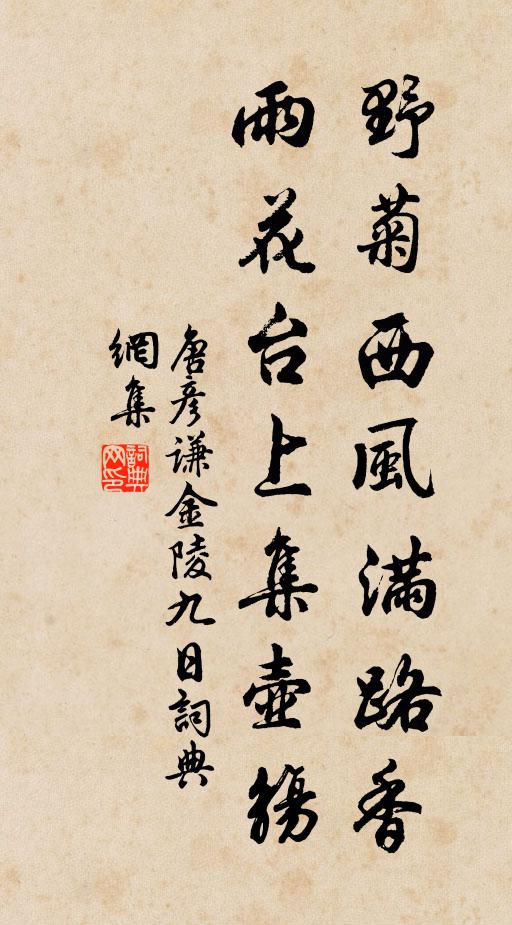 野菊西風滿路香
雨花台上集壺觴
唐彥謙金陵九日詞典
網集
詞典網印